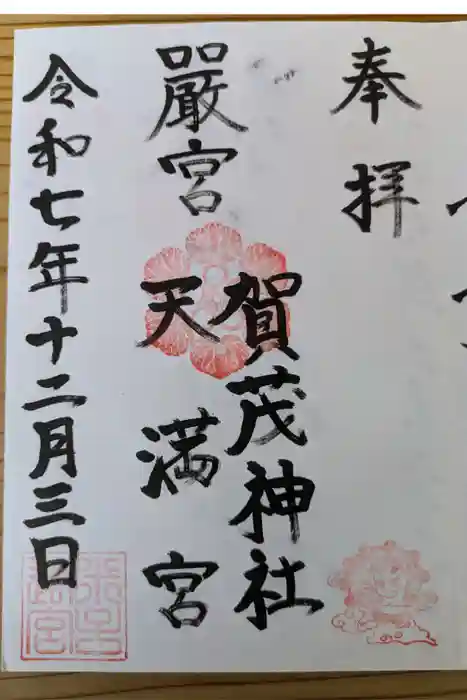 奉拝
賀茂神社
嚴宮
天満宮
令和七年十二月三日